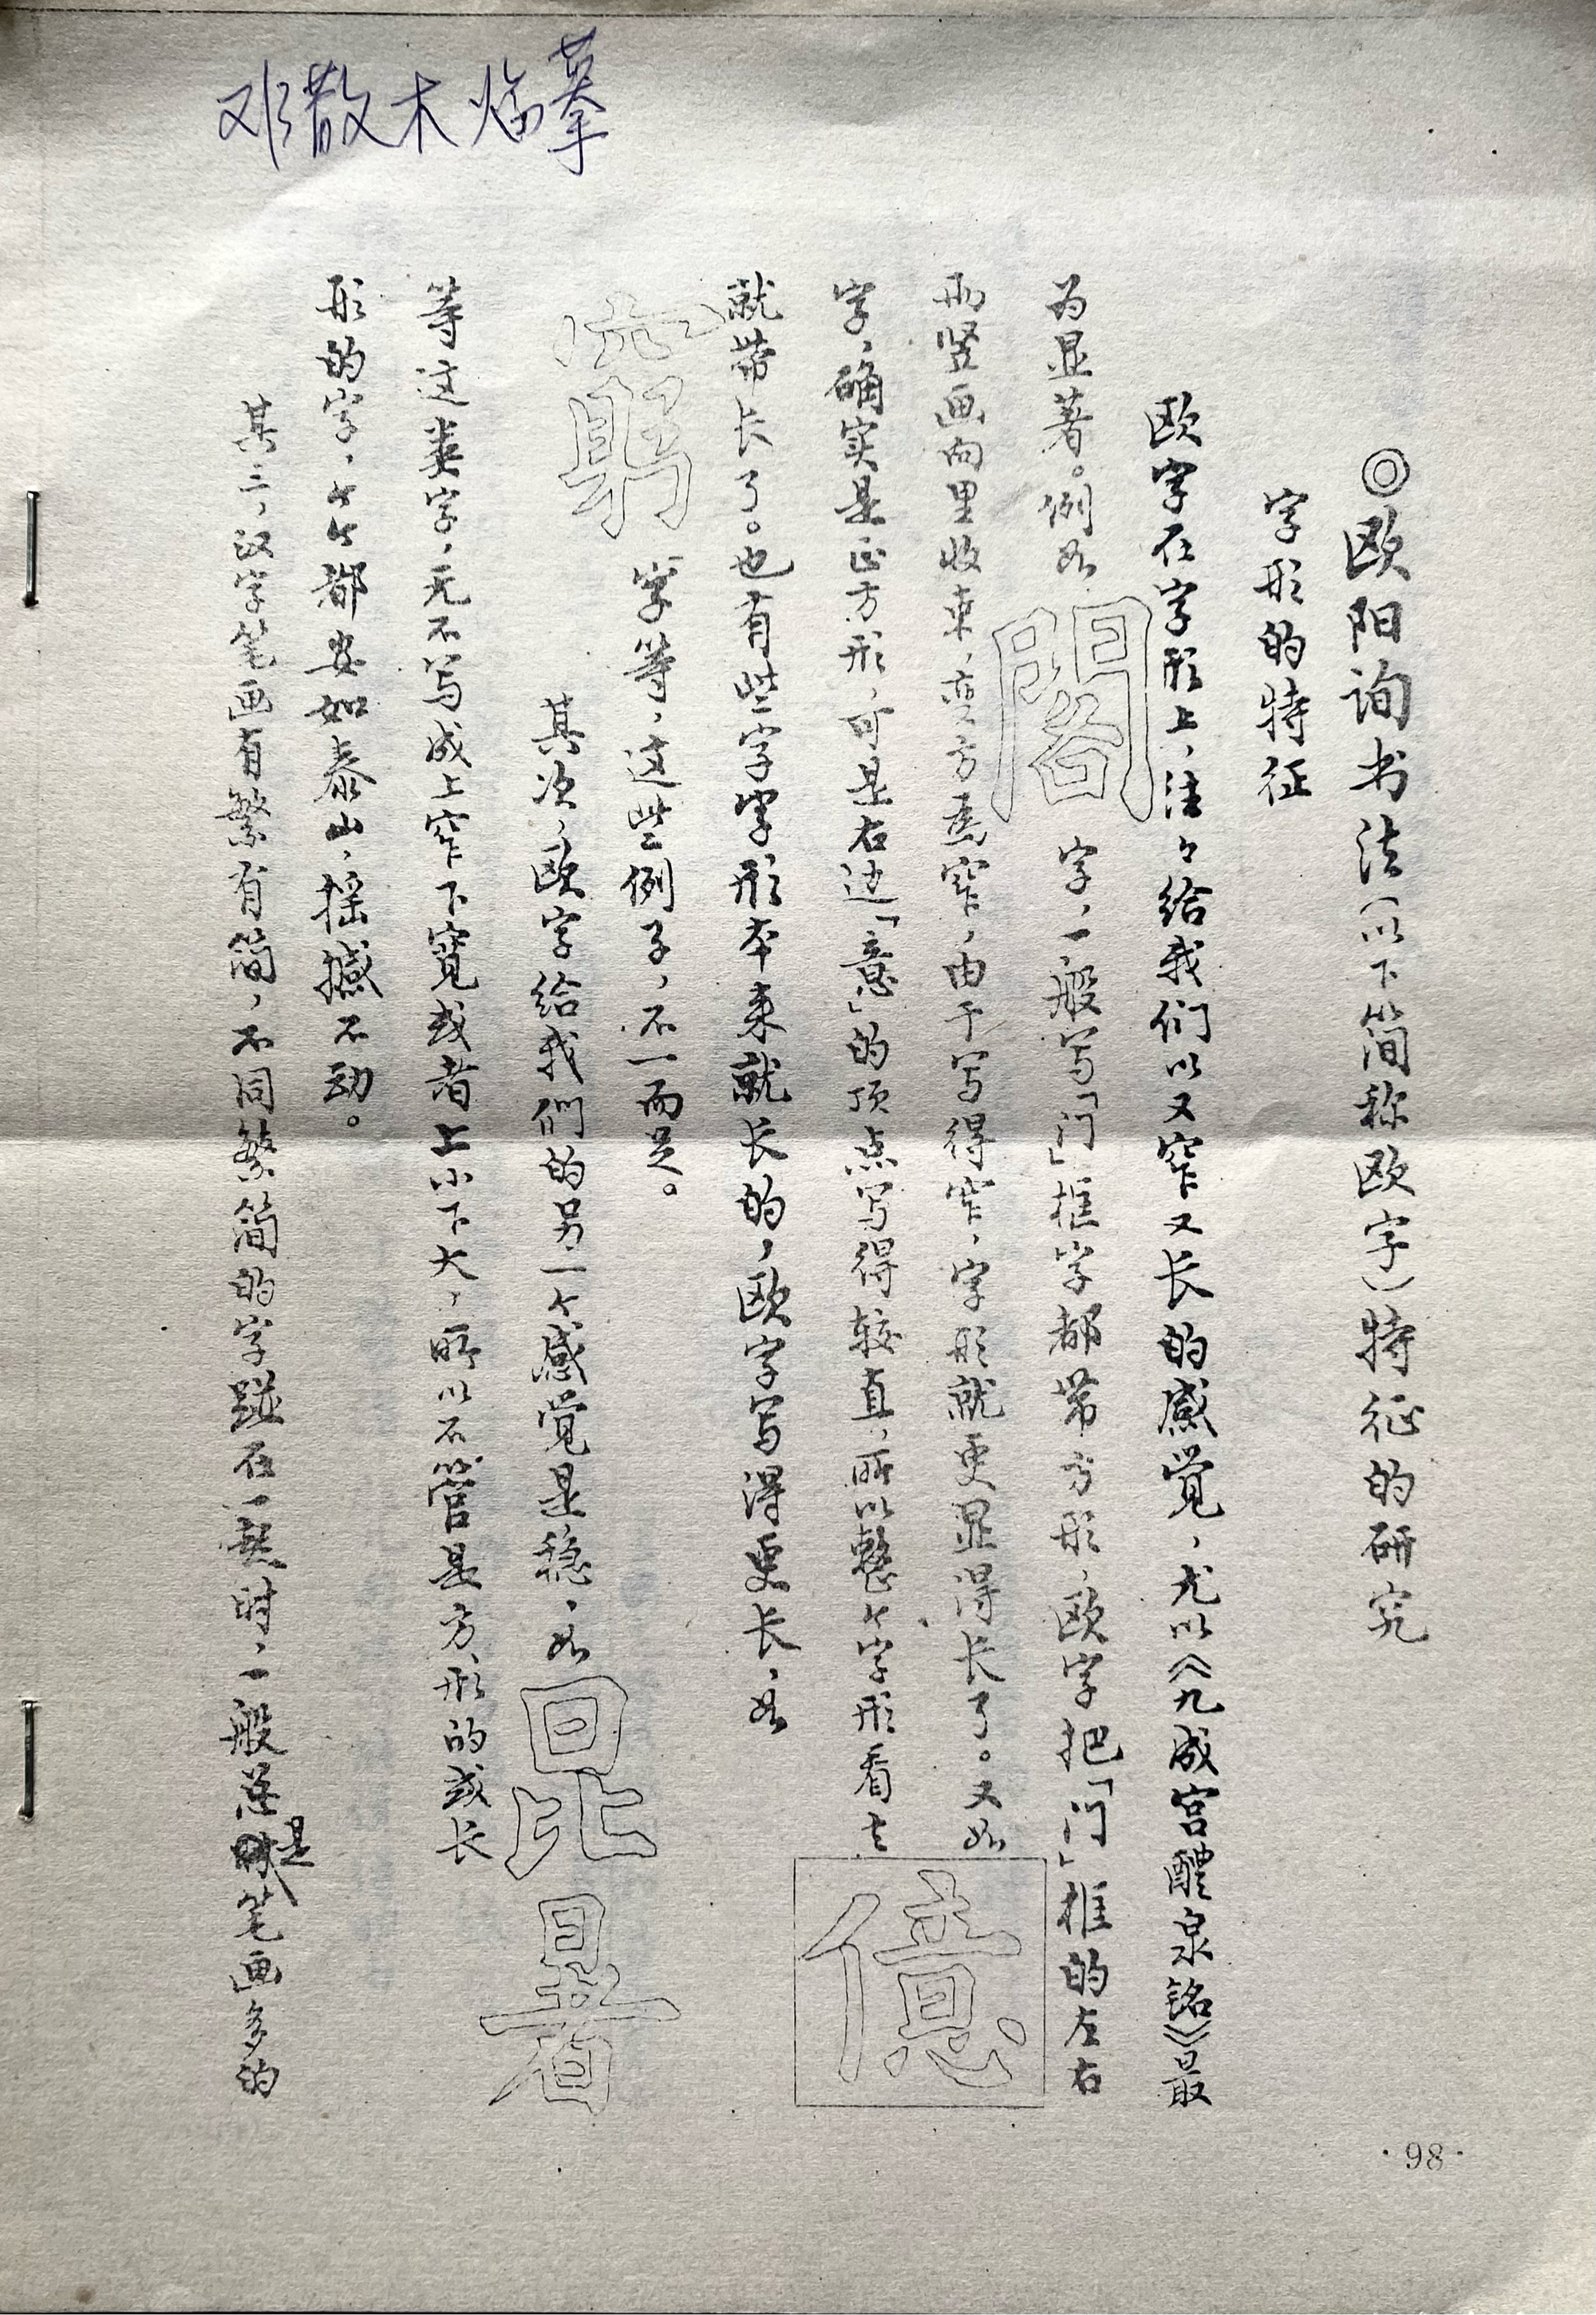 邓散木临摹
◎欧阳询书法(以下简称欧字)特征的研究
字形的特征
欧字在字形上,往々给我们以又窄又长的感觉,尤以《九成宫醴泉铭》最
为显著。例如閣字,一般写「门」框字都带方形,欧字把「门」框的左右
两竖画向里收束,变方为窄,由于写得窄,字形就更显得长了。又如億
字,确实是正方形,可是右边「意」的顶点写得较直,所以整个字形看去
就带长了。也有些字字形本来就长的,欧字写得更长,如
窮字等,这些例子,不一而足。
其次,欧字给我们的另一个感觉是稳,如昆暑
等这类字,无不写成上窄下宽或者上小下大,所以不管是方形的或长
形的字,个个都安如泰山,摇撼不动。
其三,汉字笔画有繁有简,不同繁简的字碰在一起时,一般总是笔画多的
·98·